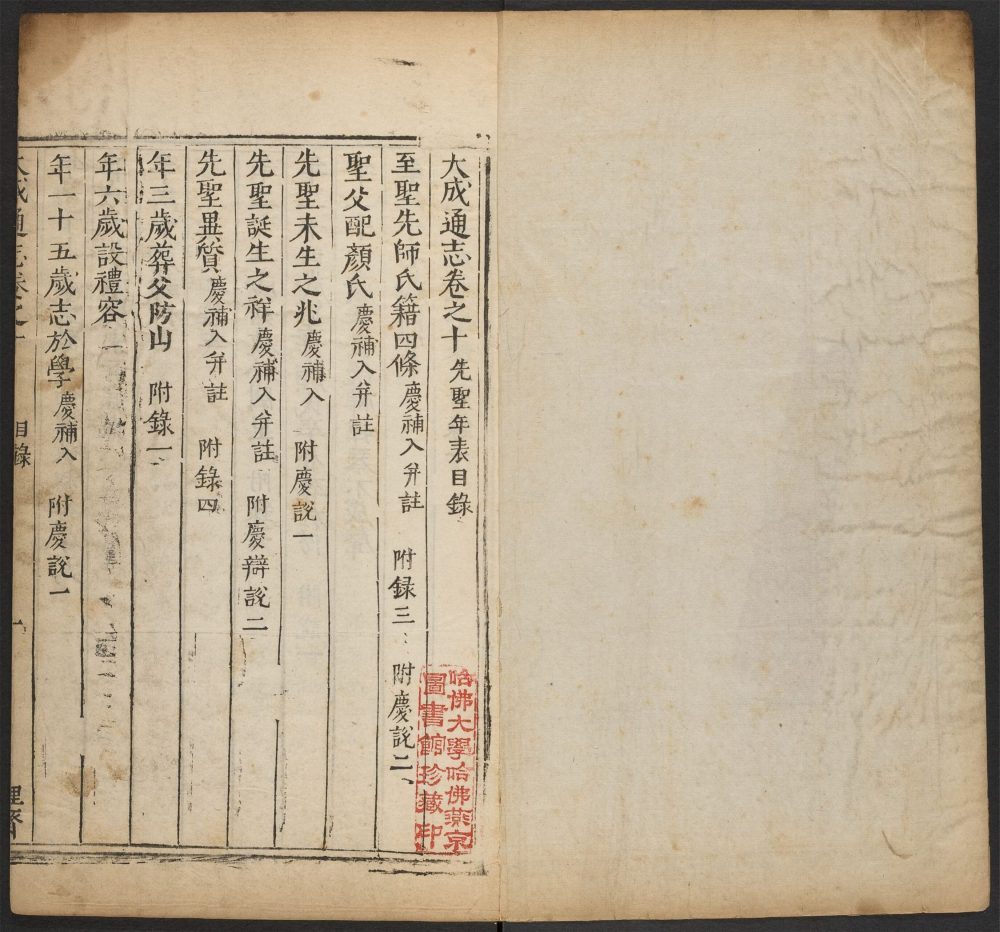 大成通志卷之十 先聖年表目錄
至聖先師氏籍四條 慶補入并註 附録三 附慶說二
聖父配顏氏 慶補入并註
先聖未生之兆 慶補入 附慶說一
先聖誕生之祥 慶補入并註 附慶辯說二
先聖異質 慶補入并註 附錄四
年三歲葬父防山 附錄一
年六歲設禮容
年一十五歲志於學 慶補入 附慶說一
大成通志卷之十 目錄 一
哈佛大學哈佛燕京
圖書館珍藏印